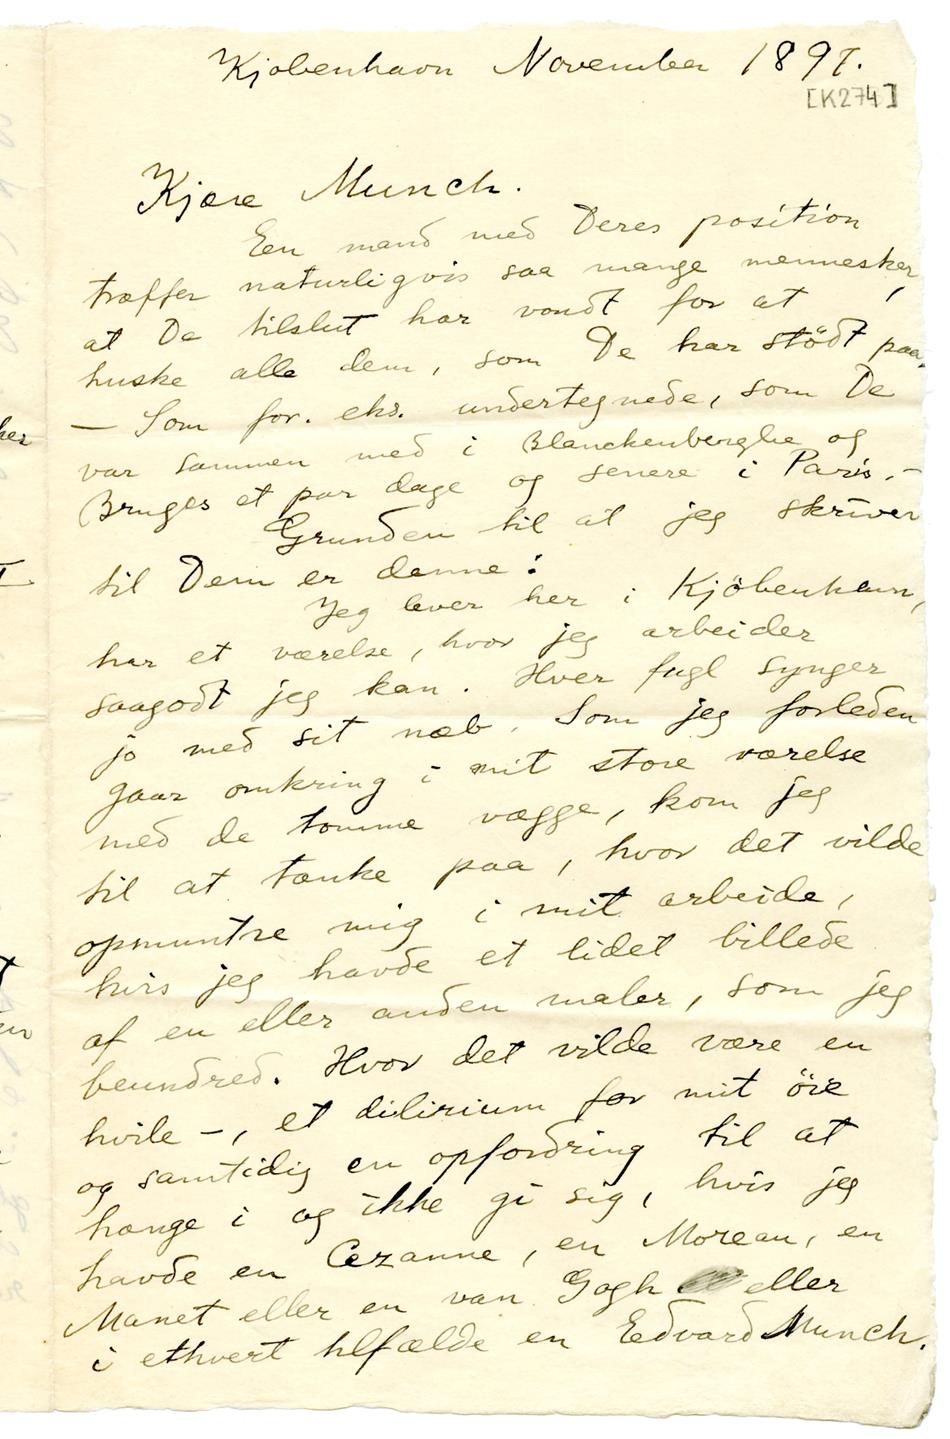 Kjøbenhavn November 1897.
[K274]
Kjære Munch.
Een mand med Deres position
træffer naturligvis saa mange mennesker,
at De tilslut har vondt for at
huske alle dem, som De har stödt paa.
– Som for. eks. undertegnede, som De
var sammen med i Blanckenberghe og
Bruges et par dage og senere i Paris. –
Grunden til at jeg skriver
til Dem er denne:
Jeg lever her i Kjöbenhavn,
har et værelse, hvor jeg arbeider
saagodt jeg kan. Hver fugl synger
jo med sit næb. Som jeg forleden
gaar omkring i mit store værelse
med de tomme vægge, kom jeg
til at tænke paa, hvor det vilde
opmuntre mig i mit arbeide,
hvis jeg havde et lidet billede
af en eller anden maler, som jeg
beundred. Hvor det vilde være en
hvile –, et dilirium for mit öie
og samtidig en opfordring til at
hænge i og ikke gi sig, hvis jeg
havde en Cezanne, en Moreau, en
Manet eller en van Gogh eller
i ethvert tilfælde en Edvard Munch.